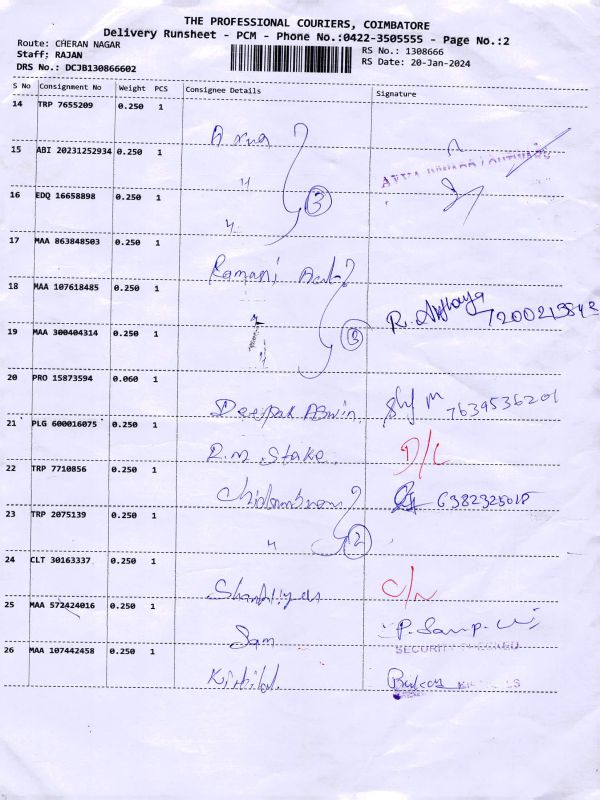 THE PROFESSIONAL COURIERS, COIMBATORE
Delivery Runsheet - PCM - Phone No.:0422-3505555 - Page No.:2
Route: CHERAN NAGAR
RS No.: 1308666
Staff; RAJAN
RS Date: 20-Jan-2024
DRS No.: DCJB130866602
S No Consignment No Weight PCS Consignee Details Signature
14 TRP 7655209 0.250 1
15 ABI 20231252934 0.250 1
16 EDQ 16658898 0.250 1
3
17 MAA 863848503 0.250 1 Ramani
18 MAA 107618485 0.250 1
R.
19 MAA 300404314 0.250 1
3
20 PRO 15873594 0.060 1 Deepak
7639536201
21 PLG 600016075 0.250 1 R.M. Stake. D/L
22 TRP 7710856 0.250 1
6382325018
23 TRP 2075139 0.250 1
2
24 CLT 30163337 0.250 1
25 MAA 572424016 0.250 1 Sam
SECURITY CHECKED
26 MAA 107442458 0.250 1